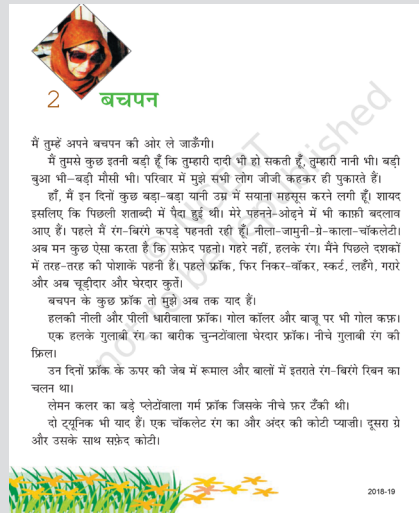 2
बचपन
मैं तुम्हें अपने बचपन की ओर ले जाऊँगी।
मैं तुमसे कुछ इतनी बड़ी हूँ कि तुम्हारी दादी भी हो सकती हूँ, तुम्हारी नानी भी। बड़ी
बुआ भी–बड़ी मौसी भी। परिवार में मुझे सभी लोग जीजी कहकर ही पुकारते हैं।
हाँ, मैं इन दिनों कुछ बड़ा-बड़ा यानी उम्र में सयाना महसूस करने लगी हूँ। शायद
इसलिए कि पिछली शताब्दी में पैदा हुई थी। मेरे पहनने-ओढ़ने में भी काफ़ी बदलाव
आए हैं। पहले मैं रंग-बिरंगे कपड़े पहनती रही हूँ। नीला-जामुनी-ग्रे-काला-चॉकलेटी।
अब मन कुछ ऐसा करता है कि सफ़ेद पहनो। गहरे नहीं, हलके रंग। मैंने पिछले दशकों
में तरह-तरह की पोशाकें पहनी हैं। पहले फ्रॉक, फिर निकर-वॉकर, स्कर्ट, लहँगे, गरारे
और अब चूड़ीदार और घेरदार कुर्ते।
बचपन के कुछ फ्रॉक तो मुझे अब तक याद हैं।
हलकी नीली और पीली धारीवाला फ्रॉक। गोल कॉलर और बाजू पर भी गोल कफ़।
एक हलके गुलाबी रंग का बारीक चुन्नटोंवाला घेरदार फ्रॉक। नीचे गुलाबी रंग की
फ्रिल।
उन दिनों फ्रॉक के ऊपर की जेब में रूमाल और बालों में इतराते रंग-बिरंगे रिबन का
चलन था।
लेमन कलर का बड़े प्लेटोंवाला गर्म फ्रॉक जिसके नीचे फ़र टँकी थी।
दो ट्यूनिक भी याद हैं। एक चॉकलेट रंग का और अंदर की कोटी प्याज़ी। दूसरा ग्रे
और उसके साथ सफ़ेद कोटी।
2018-19
not to be republished